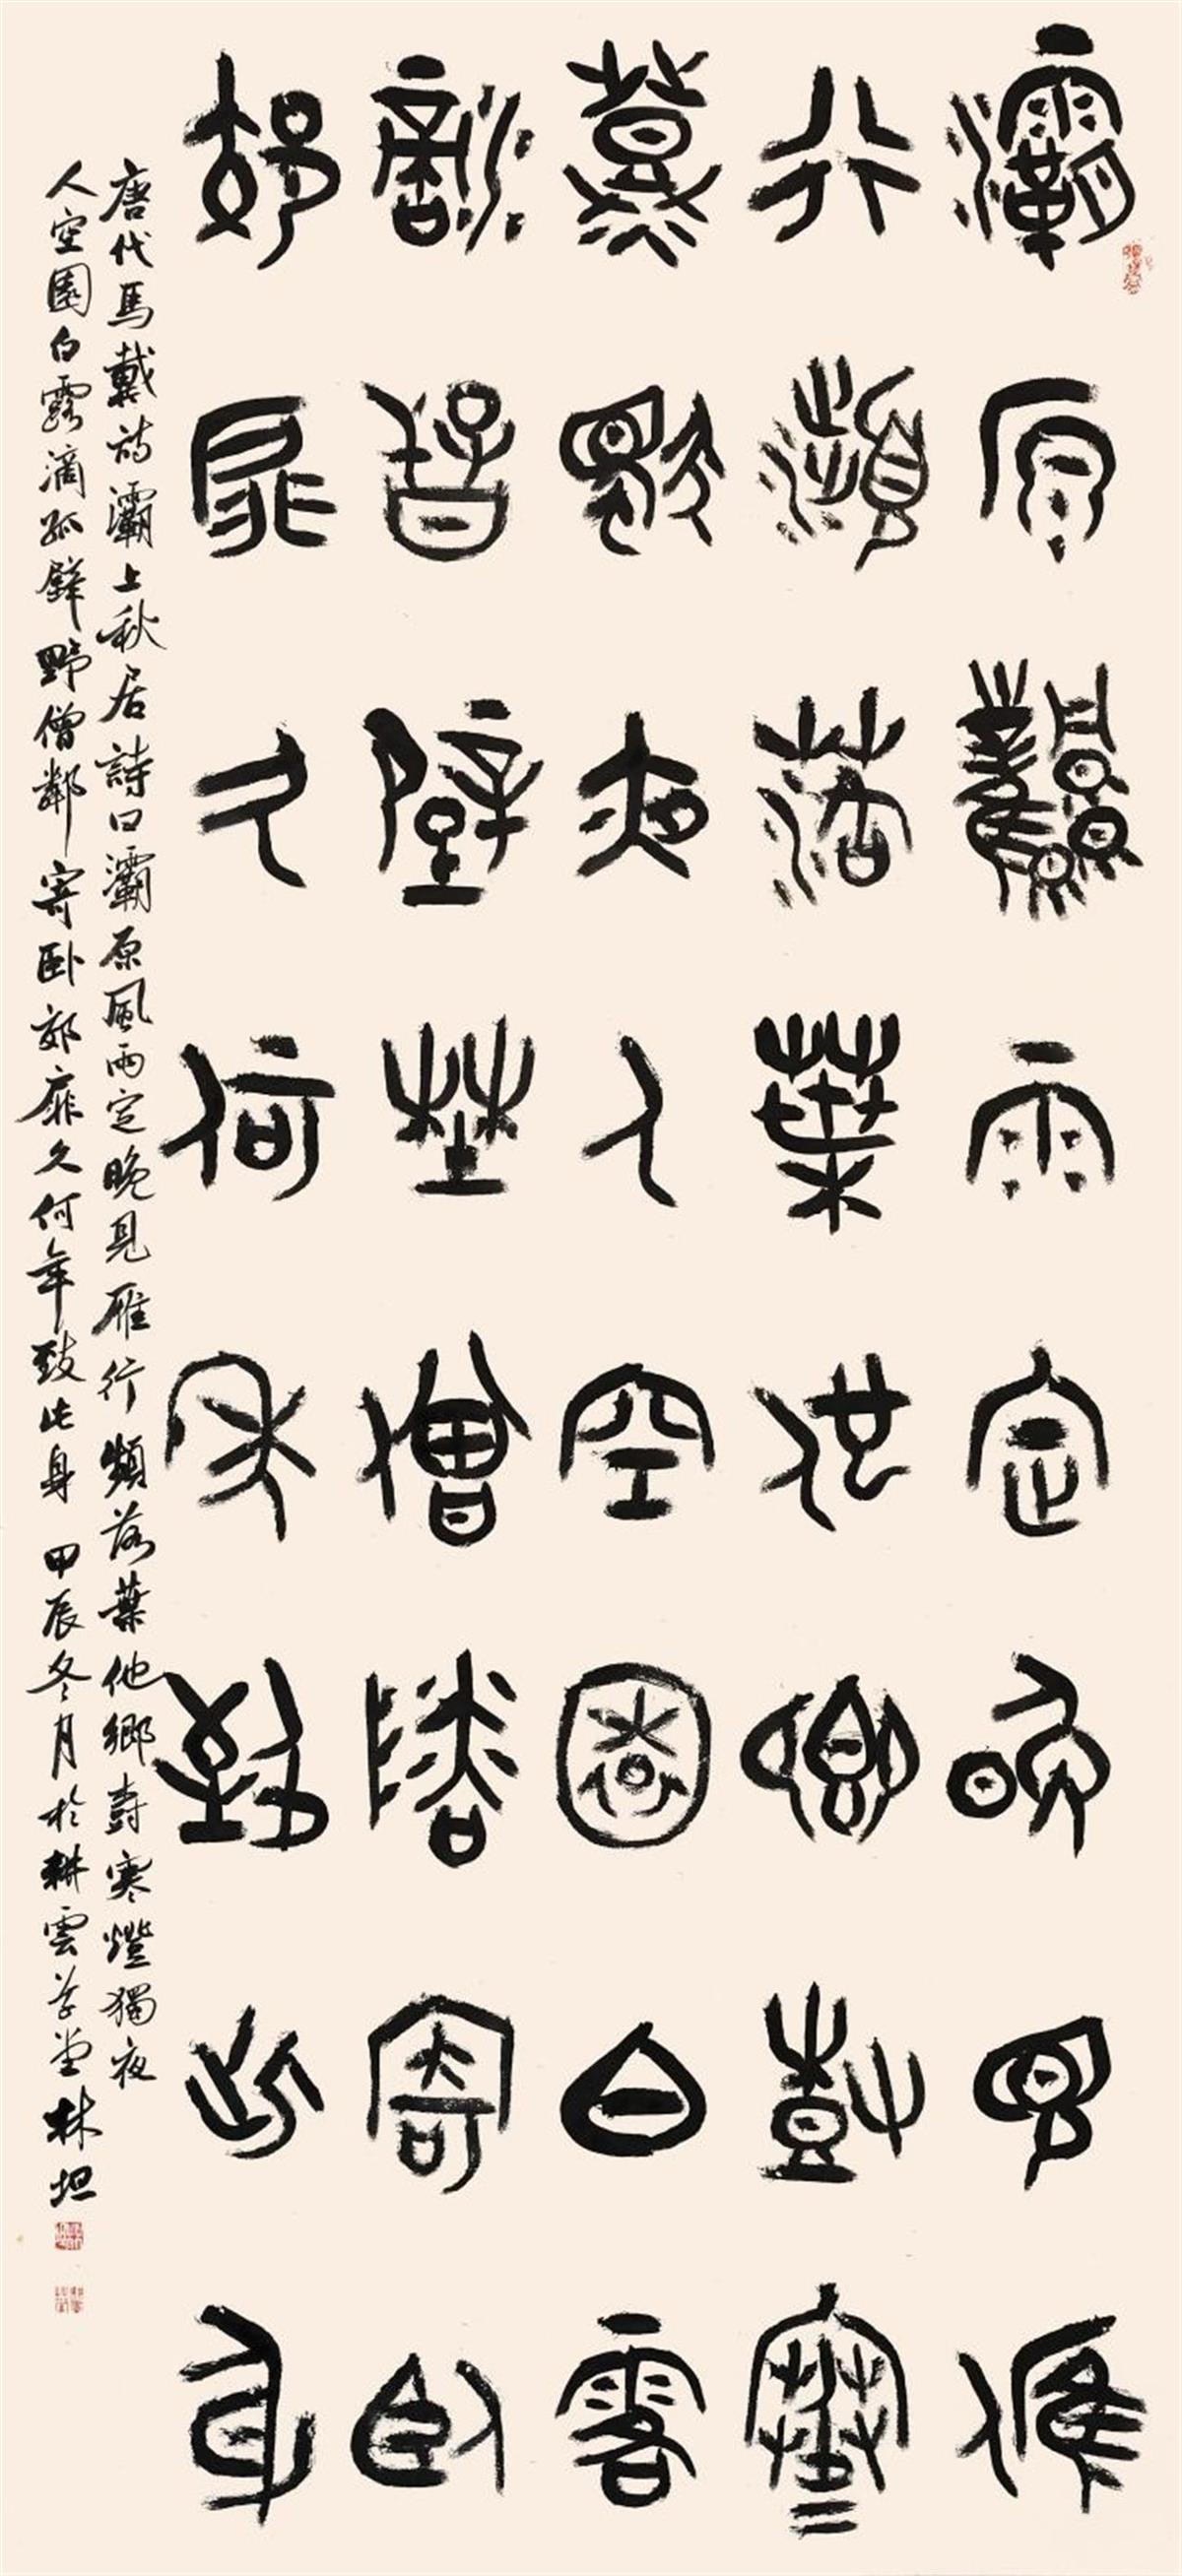 灞原風雨定晚見雁
行頻落葉他鄉尌寒
燈獨夜人空園白露
滴孤壁埜僧鄰寄臥
郊扉久何年致此身
唐代馬戴詩灞上秋居詩曰灞原風雨定晚見雁行頻落葉他鄉尌寒燈獨夜
人空園白露滴孤壁野僧鄰寄臥郊扉久何年致此身 甲辰冬月於耕雲草堂林坦